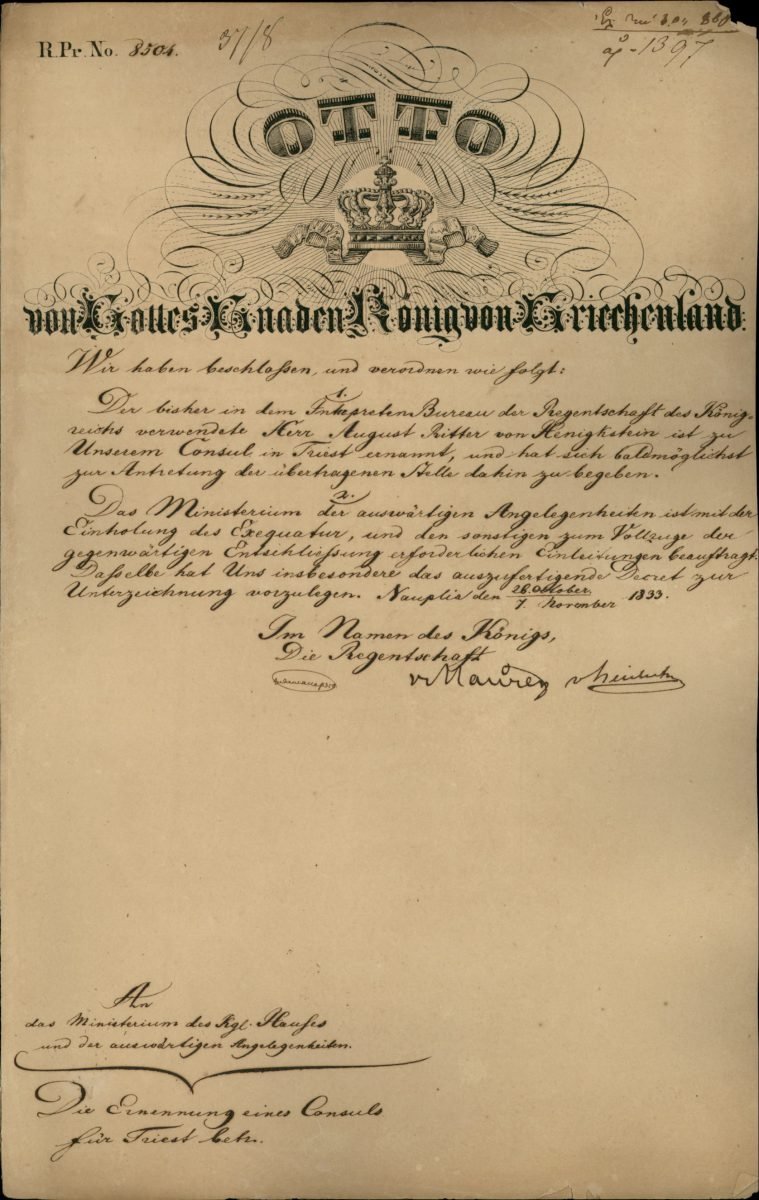 R.Pr. No. 8504.
37/8
1397
OTTO
von Gottes Gnaden König von Griechenland.
Wir haben beschlossen, und verordnen wie folgt:
1.
Der bisher in dem Intrpreten Bureau der Regentschaft des König-
reichs verwendete Herr August Ritter von Henigkstein ist zu
Unserem Consul in Triest ernannt, und hat sich baldmöglichst
zur Antretung der übertragenen Stelle dahin zu begeben.
2.
Das Ministerium der auswärtigen Angelegenheiten ist mit der
Einholung des Exequatur, und den sonstigen zum Vollzuge der
gegenwärtigen Entschliessung erforderlichen Einleitungen beauftragt.
Dasselbe hat Uns insbesondere das auszufertigende Decret zur
Unterzeichnung vorzulegen. Nauplia den 26. Oktober / 7. November 1833.
Im Namen des Königs,
Die Regentschaft
v Maurer
An
das Ministerium des Kgl. Hauses
und der auswärtigen Angelegenheiten.
Die Ernennung eines Consuls
für Triest betr.